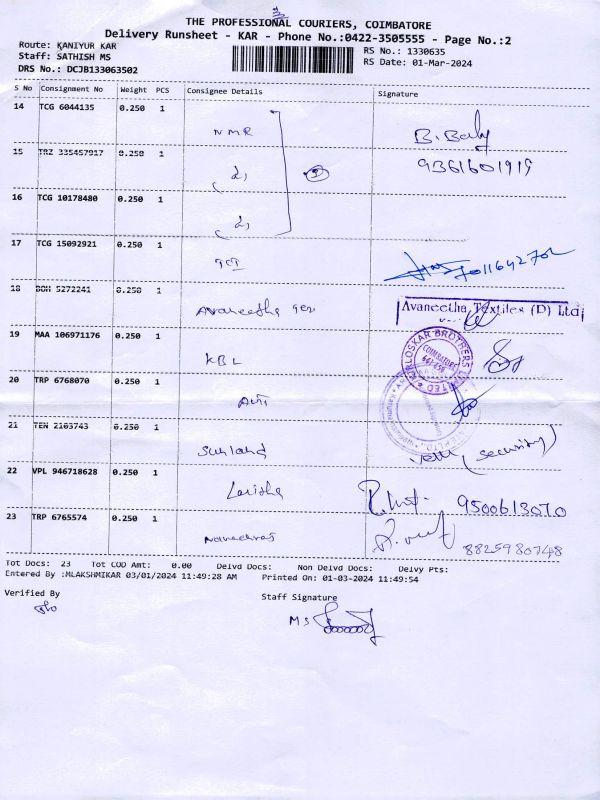 THE PROFESSIONAL COURIERS, COIMBATORE
Delivery Runsheet - KAR - Phone No.:0422-3505555 - Page No.:2
Route: KANIYUR KAR
Staff: SATHISH MS
DRS No.: DCJB133063502
RS No.: 1330635
RS Date: 01-Mar-2024
S No Consignment No Weight PCS Consignee Details Signature
14 TCG 6044135 0.250 1
NMR
B. Baby
9361601919
15 TRZ 335457917 0.250 1
16 TCG 10178480 0.250 1
17 TCG 15092921 0.250 1
7011642702
18 DOH 5272241 0.250 1
Avaneetha Tex
Avaneetha Textiles (P) Ltd
19 MAA 106971176 0.250 1
KBL
KIRLOSKAR BROTHERS LIMITED
COIMBATORE
641 659
20 TRP 6768070 0.250 1
21 TEN 2103743 0.250 1
Sunland
(security)
22 VPL 946718628 0.250 1
9500613070
23 TRP 6765574 0.250 1
8825980748
Tot Docs: 23 Tot COD Amt: 0.00 Delvd Docs: Non Delvd Docs: Delvy Pts:
Entered By :MLAKSHMIKAR 03/01/2024 11:49:28 AM Printed On: 01-03-2024 11:49:54
Verified By
Staff Signature
MS